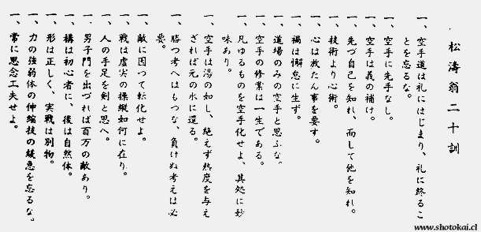 松濤翁二十訓
一、空手道は礼にはじまり、礼に終るこ
とを忘るな。
一、空手に先手なし。
一、空手は義の補け。
一、先づ自己を知れ、而して他を知れ。
一、技術より心術。
一、心は放たん事を要す。
一、禍は懈怠に生ず。
一、道場のみの空手と思ふな。
一、空手の修業は一生である。
一、凡ゆるものを空手化せよ、其処に妙
味あり。
一、空手は湯の如し、絶えず熱度を与え
ざれば元の水に還る。
一、勝つ考へはもつな、負けぬ考えは必
要。
一、敵に因つて転化せよ。
一、戦は虚実の操縦如何に在り。
一、人の手足を剣と思へ。
一、男子門を出づれば百万の敵あり。
一、構は初心者に、後は自然体。
一、形は正しく、実戦は別物。
一、力の強弱体の伸縮技の緩急を忘るな。
一、常に思念工夫せよ。
www.shotokai.cl